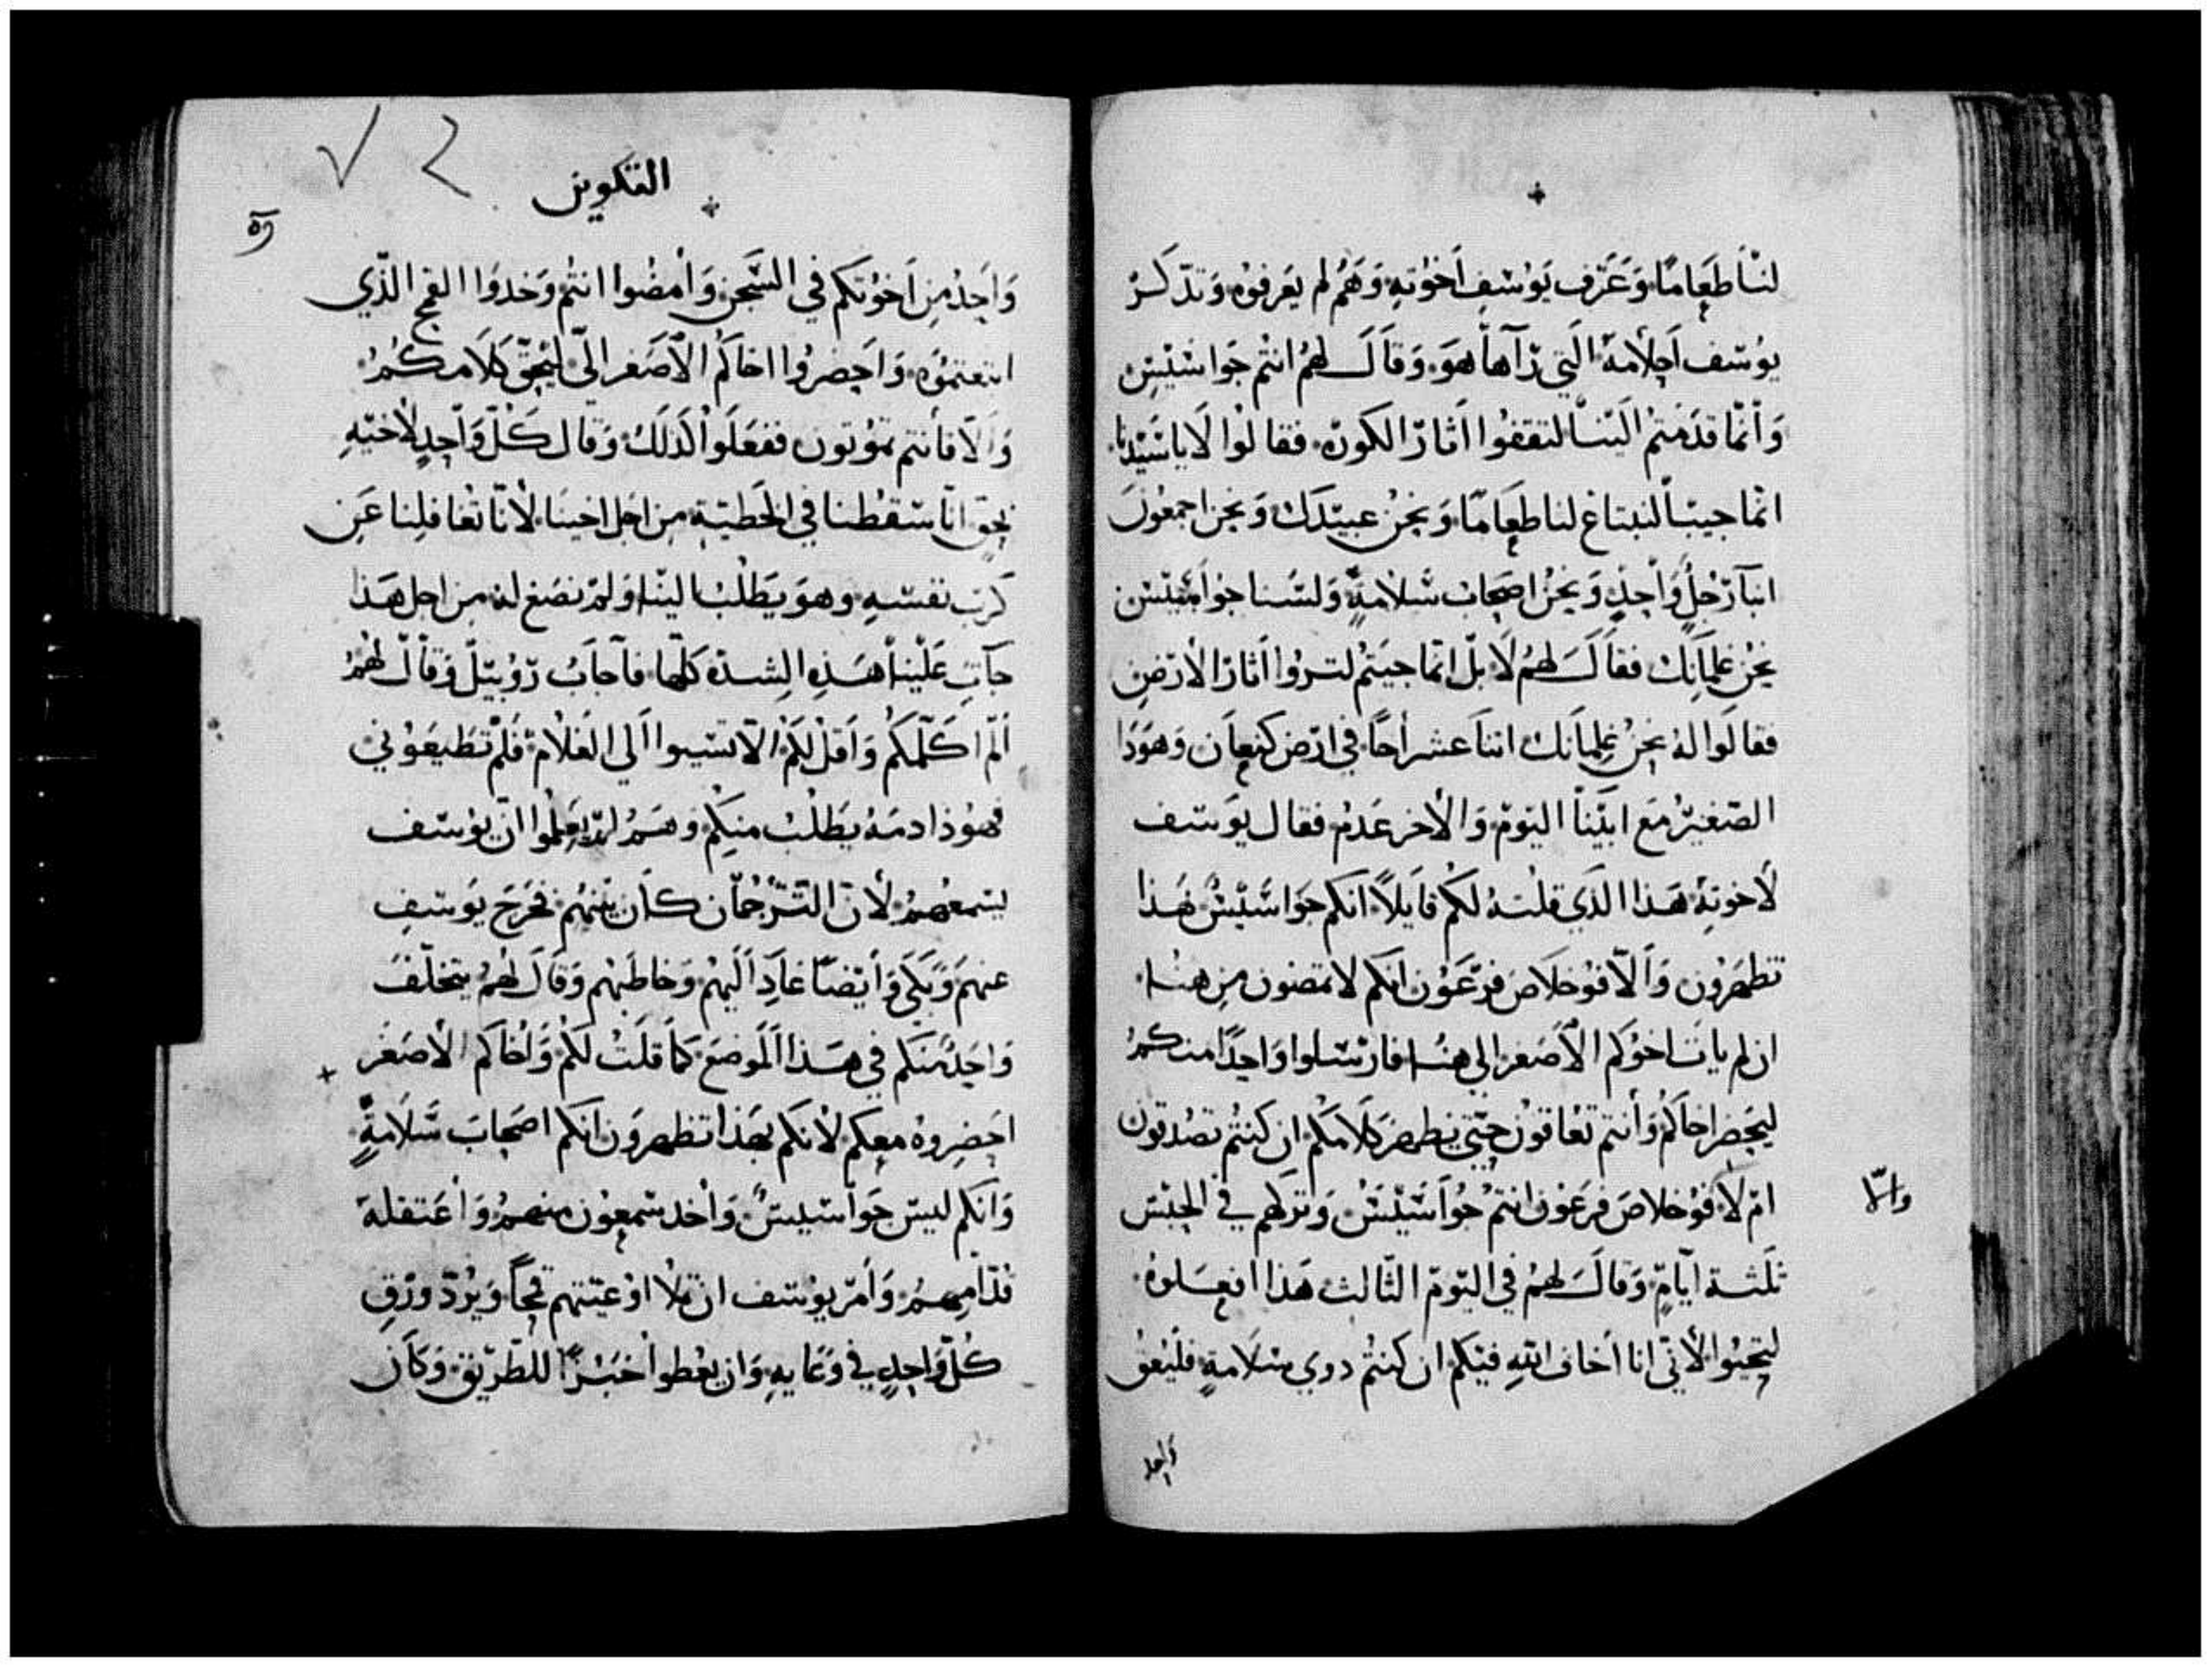 لنا طعاما وعرف يوسف اخوته وهم لم يعرفوه وتذكر
يوسف احلامة التي رآها هو وقال لهم انتم جواسيس
وانما قدمتم الينا لتقفوا اثار الكورة فقالوا لا يا سيدنا
انما جينا لنبتاع لنا طعاما ونحن عبيدك ونحن اجمعون
انبآ رجل واحد ونحن اصحاب سلامة ولسنا جواسيس
نحن غلمانك فقال لهم لا بل انما جيتم لتروا اثار الارض
فقالوا له نحن غلمانك اثنا عشر اخا في ارض كنعان وهوذا
الصغير مع ابينا اليوم والاخر عدم فقال يوسف
لاخوته هذا الذي قلته لكم قايلا انكم جواسيس بهذا
تظهرون والا فوخلاص فرعون انكم لا تمضون من هنا
ان لم يات اخوكم الاصغر الي هنا فارسلوا واحدا منكم
ليحضر اخاكم وانتم تعاقون حتي يظهر كلامكم ان كنتم تصدقون
ام لا فوخلاص فرعون انتم جواسيس وتركهم في الحبس
والا
ثلثة ايام وقال لهم في اليوم الثالث هذا افعلوه
لتحيوا لاني انا اخاف الله فيكم ان كنتم دوي سلامة فليعق
واحد
التكوين
٥٢
واحد من اخوتكم في السجن وامضوا انتم وخدوا القمح الذي
ابتعتموه واحضروا اخاكم الاصغر الي ليحق كلامكم
والا فانتم تموتون ففعلوا كذلك وقال كل واحد لاخيه
بحق انا سقطنا في الخطية من اجل اخينا لانا تغافلنا عن
كرب نفسه وهو يطلب الينا ولم نصغ له من اجل هذا
جآت علينا هذه الشدة كلها فآجاب روبيل وقال لهم
الم اكلمكم واقل لكم الا تسيوا الي الغلام فلم تطيعوني
فهوذا دمه يطلب منكم وهم لم يعلموا ان يوسف
يسمعهم لان الترجمان كان بينهم فخرج يوسف
عنهم وبكى وايضا عاد اليهم وخاطبهم وقال لهم يتخلف
واحد منكم في هذا الموضع كما قلت لكم واخاكم الاصغر
احضروه معكم لانكم بهذا تظهرون انكم اصحاب سلامة
وانكم ليس جواسيس واخد شمعون منهم واعتقله
قدامهم وامر يوسف ان تملا اوعيتهم قمحا ويرد ورق
كل واحد في وعايه وان يعطوا خبزا للطريق وكان